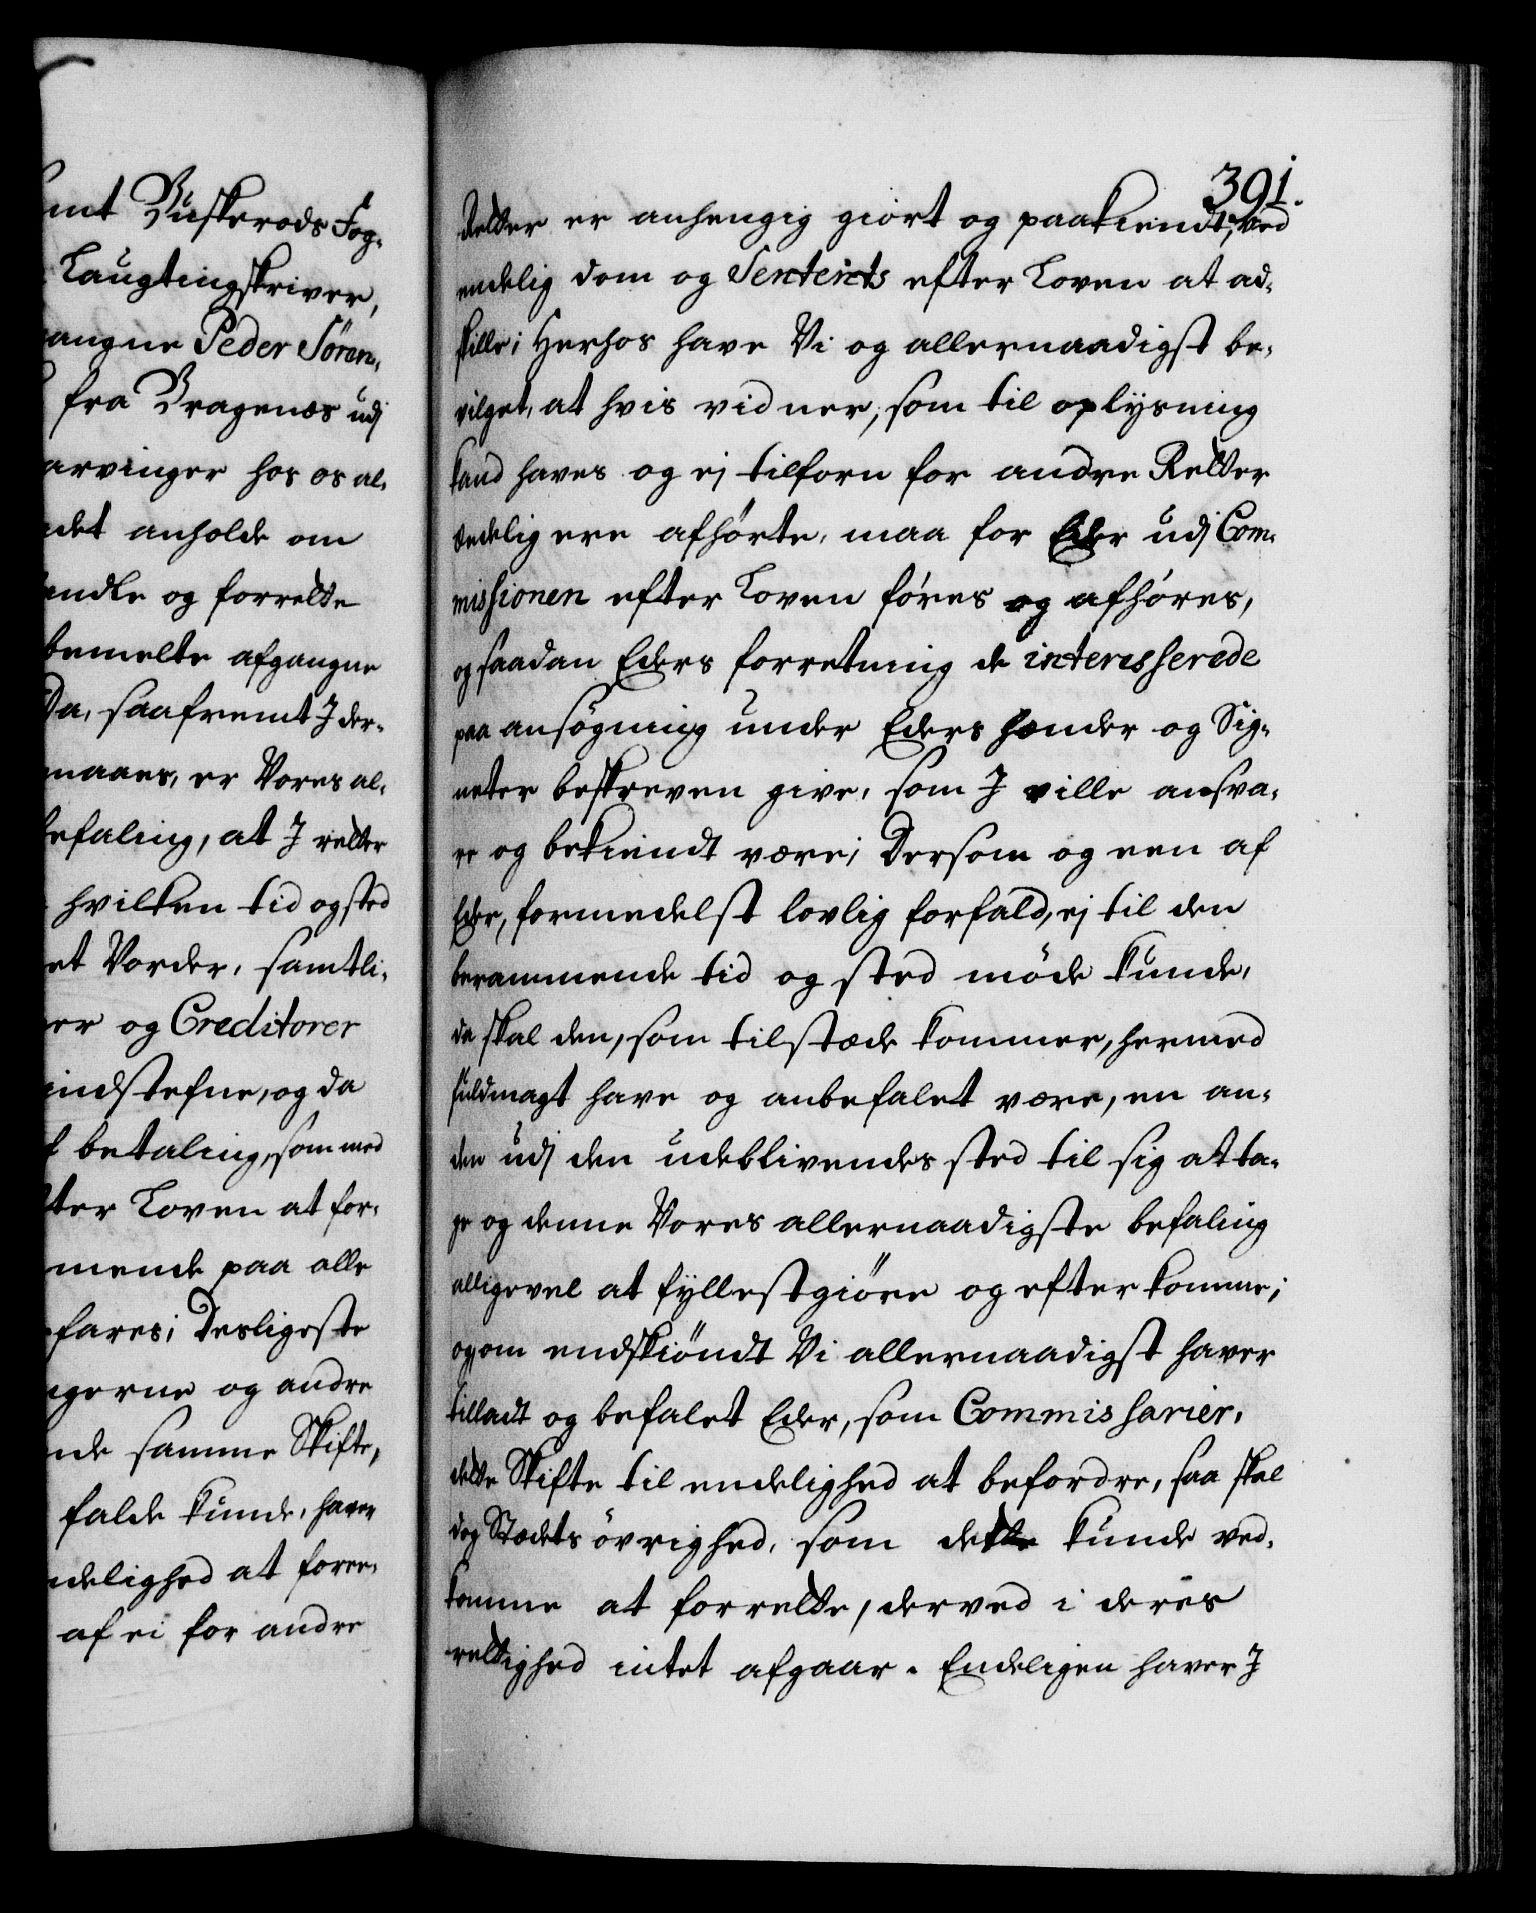 mt Buskerods Fog-
Laugtingskriver,
angne Peder Sören-
fra Bragenæs udj
arvinger hos os al-
det anholde om
andle og forrette
bemelte afgangne
Da, saafremt J der-
maaes, er Vores al-
befaling, at J retter
hvilken tid og sted
et Vorder, samtli-
er og Creditorer
indstefne, og da
betaling, som med
ter Loven at for-
mende paa alle
fares; Desligeste
gerne og andre
de samme Skifte,
falde kunde, haver
delighed at foree-
af ei for andre
391.
Retter er anhengig giort og paakiendt, ved
endelig dom og Sentents efter Loven at ad-
skille; Herhos have Vi og allernaadigst be-
vilget, at hvis vidner, som til oplÿsning
kand haves og ej tilforn for andre Retter
Eedelig ere afhörte, maa for Eder udj Com-
missionen efter Loven föres og afhöres,
og saadan Eders forretning de interesserede
paa ansögning under Eders hænder og Sig-
neter beskreven give, som J ville ansva-
re og bekiendt være; Dersom og een af
Eder, formedelst lovlig forfald, ej til den
berammende tid og sted möde kunde,
da skal den, som tilstæde kommer, hermed
fuldmagt have og anbefalet være, en an-
den udj den udeblivendes sted til sig at ta-
ge og denne Vores allernaadigste befaling
alligevel at fÿllestgiöre og efterkomme;
og om endskiöndt Vi allernaadigst haver
tilladt og befalet Eder, som Commissarier,
dette Skifte til endelighed at befordre, saa skal
dog Stædets övrighed, som dette kunde ved-
komme at forrette, derved i deres
rettighed intet afgaar. Endeligen haver J